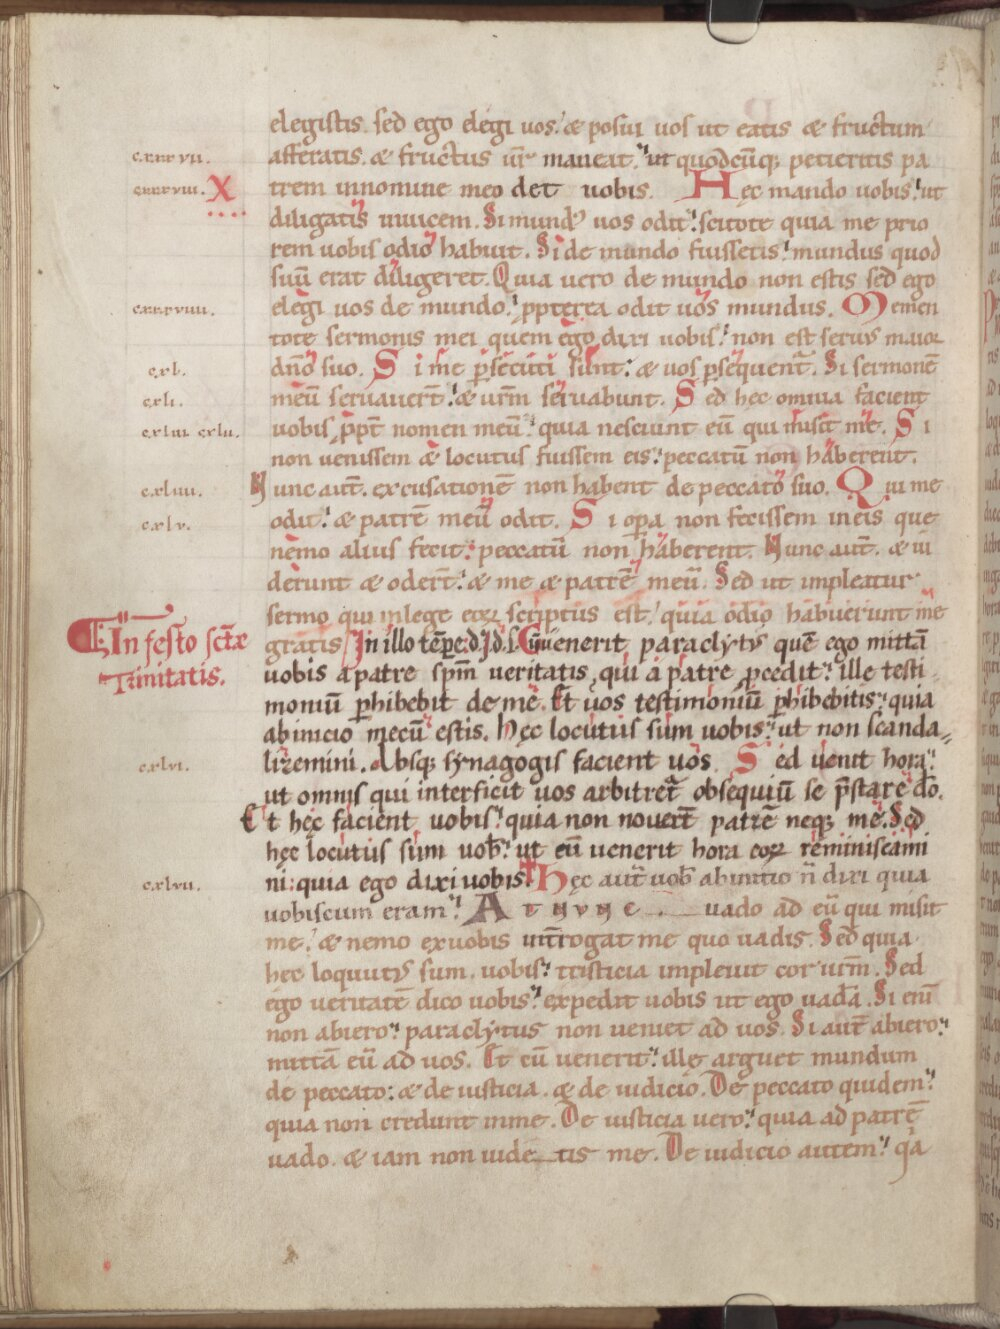 elegistis. sed ego elegi uos. & posui uos ut eatis & fructum
c.xxx vii.
afferatis. & fructus ur̄ maneat. ut quodcūq; petieritis pa
c.xxxviii. X
trem innomine meo det uobis. Hec mando uobis. ut
diligatis inuicem. Si mund' uos odit. scitote quia me prio
rem uobis odio habuit. Si de mundo fuissetis. mundus quod
suū erat diligeret. Quia uero de mundo non estis sed ego
c.xxxviiii.
elegi uos de mundo. ppterea odit uos mundus. Memen
tote sermonis mei quem ego dixi uobis. non est seruus maior
c.xl.
dn̄o suo. Si me psecuti sunt. & uos psequent. Si sermonē
c.xli.
meū seruauert̄. & urm̄ seruabunt. Sed hec omnia facient
c.xlii. c.xliii.
uobis ppt̄ nomen meū. quia nesciunt eū qui misit me. Si
non uenissem & locutus fuissem eis. peccatū non haberent.
c.xliiii.
Nunc aut̄. excusationē non habent de peccato suo. Qui me
c.xlv.
odit. & patrē meū odit. Si opa non fecissem in eis que
nemo alius fecit. peccatū non haberent. Nunc aut̄. & ui
derunt & odert̄. & me & patrē meū. Sed ut impleatur
sermo qui inlege eoꝝ scriptus est. quia odio habuerunt me
In festo sc̄tæ
Trinitatis.
gratis In illo tēpe. d. Ih̄s. Cū uenerit paraclytus quē ego mittā
uobis a patre spm̄ ueritatis, qui a patre pcedit. ille testi
moniū phibebit de me. Et uos testimoniū phibebitis. quia
abinicio mecū estis. Hęc locutus sum uobis. ut non scanda
lizemini. Absq; synagogis facient uos. Sed uenit hora.
c.xlvi.
ut omnis qui interficit uos arbitret obsequiū se pstare dō.
Et hęc facient uobis. quia non nouert̄ patrē neq; me. Sed
hęc locutus sum uob. ut cū uenerit hora eoꝝ reminiscami
c.xlvii.
ni: quia ego dixi uobis. Hęc aut̄ uob abinitio n̄ dixi quia
uobiscum eram. AT NUNC. uado ad eū qui misit
me. & nemo exuobis introgat me quo uadis. Sed quia
hec loquutus sum. uobis. tristicia impleuit cor urm̄. Sed
ego ueritatē dico uobis. expedit uobis ut ego uadā. Si enī
non abiero. paraclytus non ueniet ad uos. Si aut̄ abiero.
mittā eū ad uos. Et cū uenerit. ille arguet mundum
de peccato: & de iusticia. & de iudicio. De peccato quidem.
quia non credunt inme. De iusticia uero. quia ad patrē
uado. & iam non uide tis me. De iudicio autem. qa